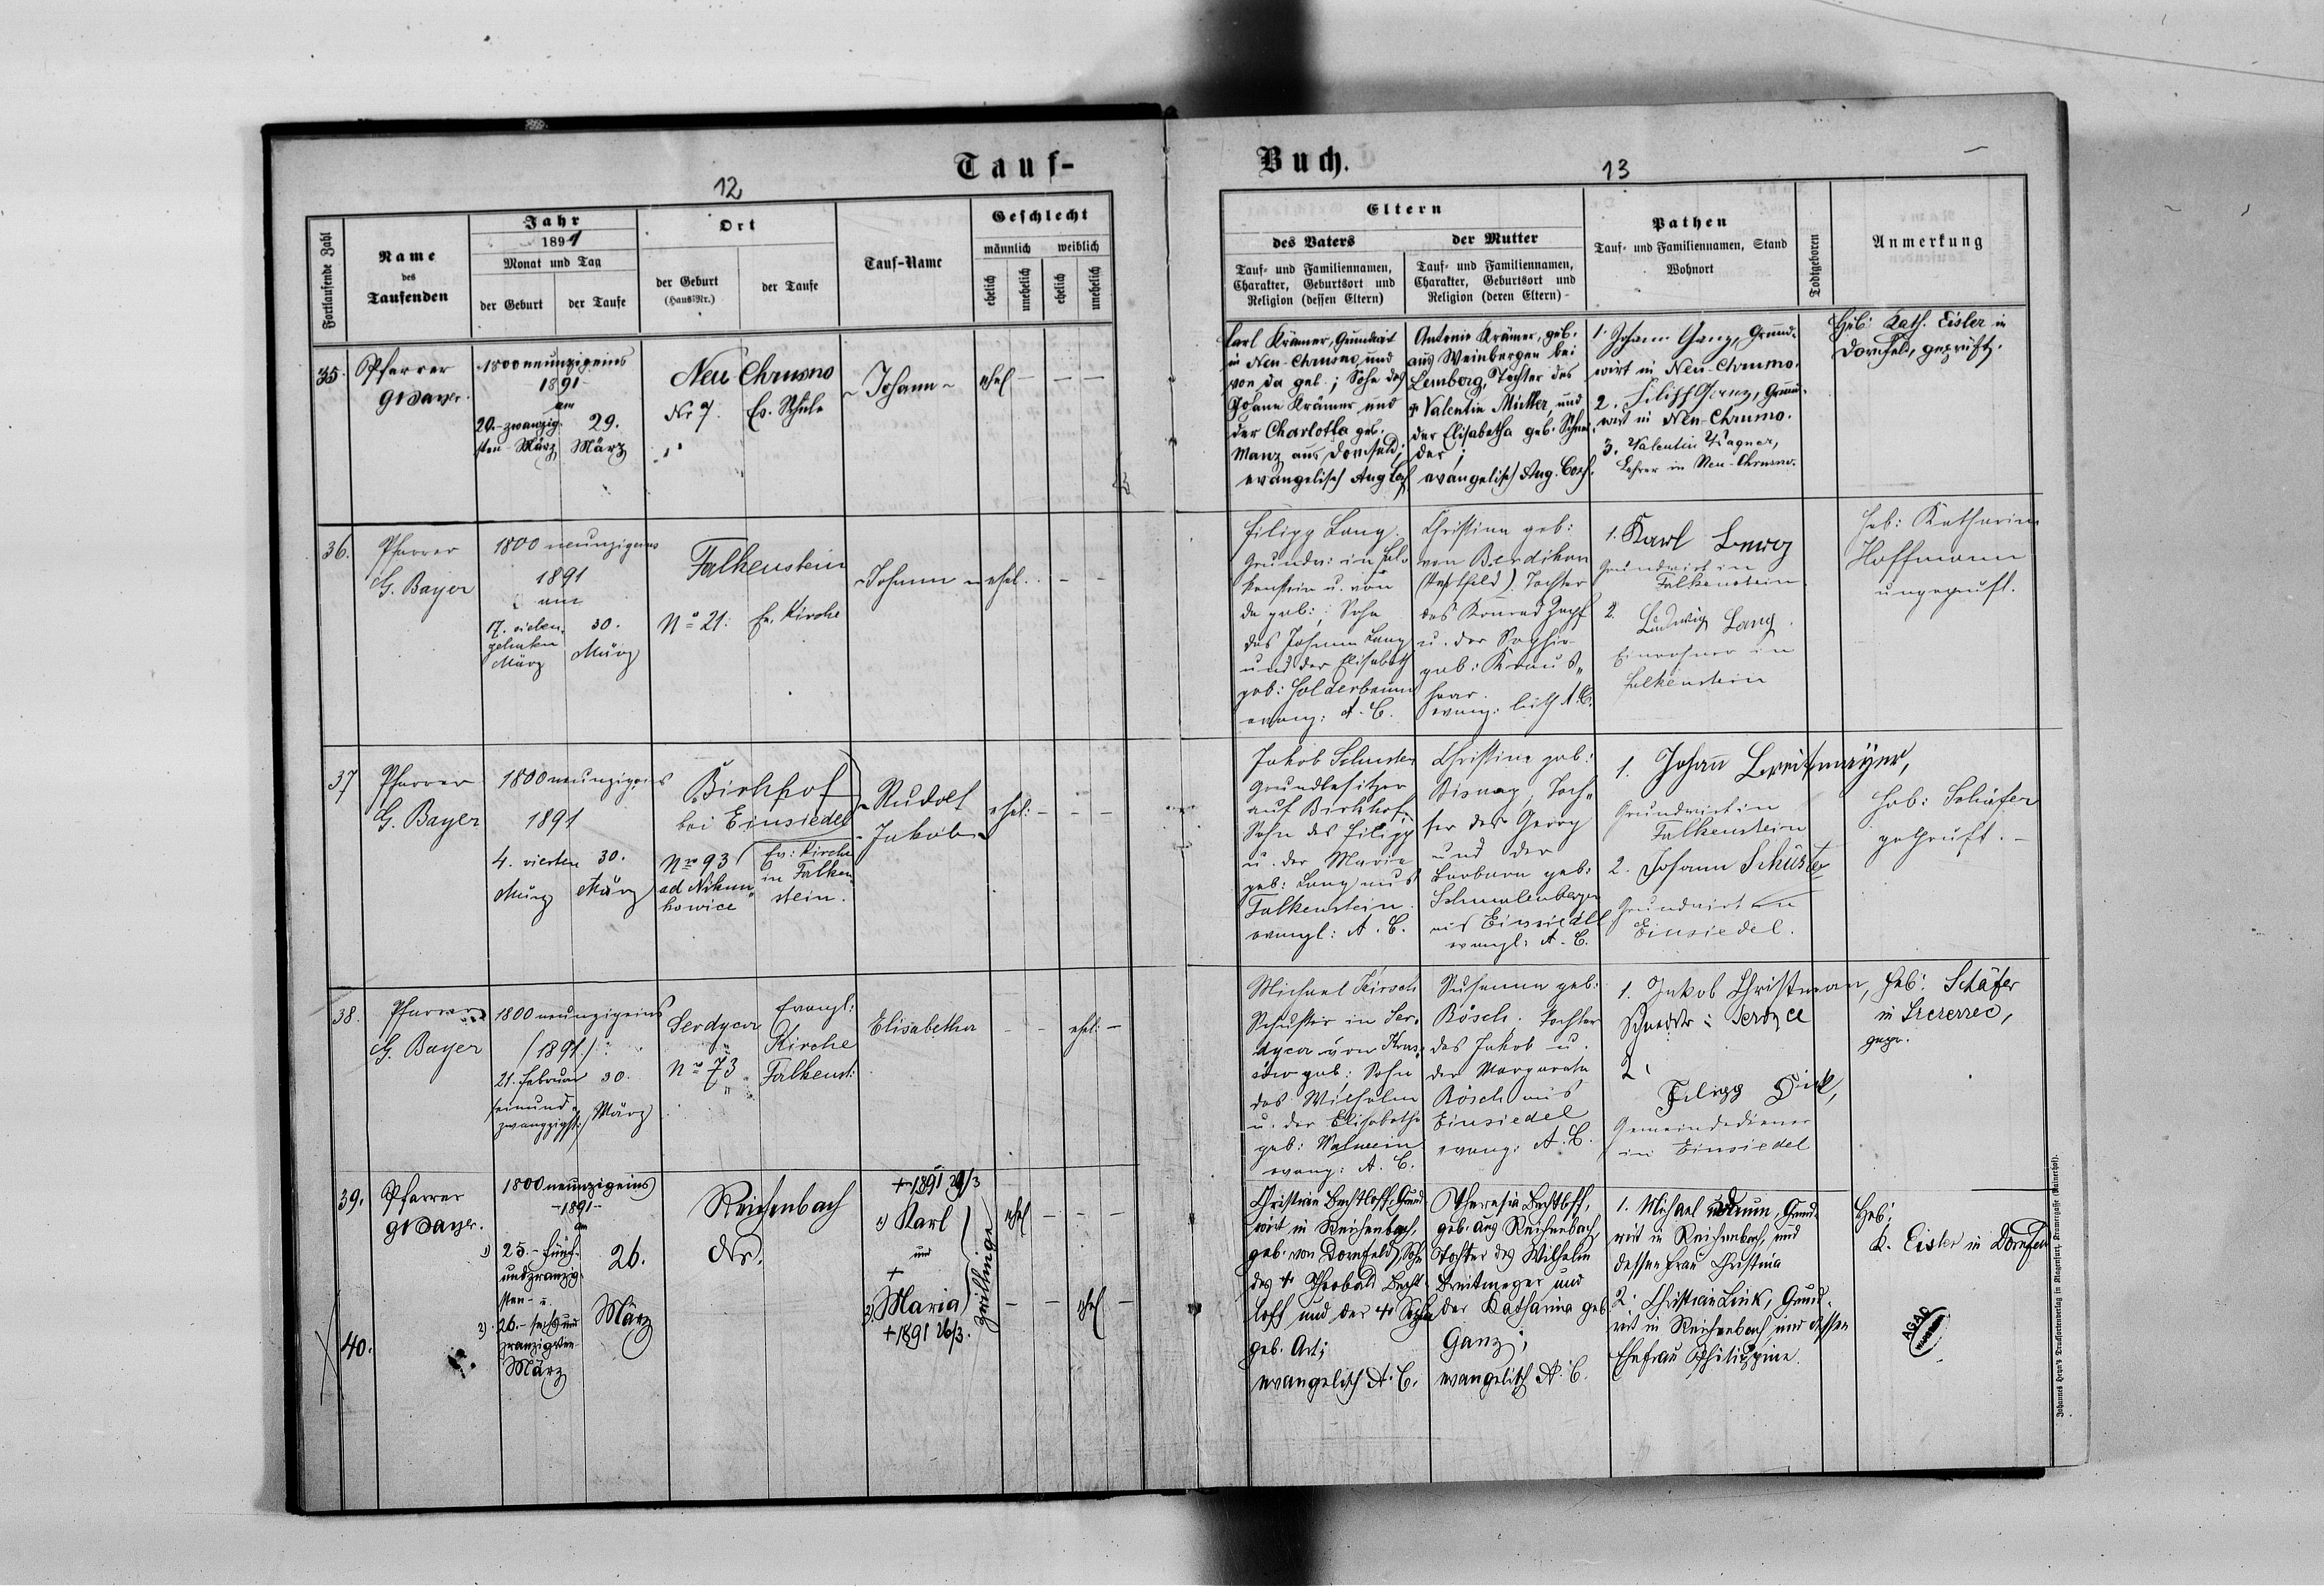 Tauf-
Buch.
12
13
Fortlaufende Zahl
Name
des
Taufenden
Jahr
1891
Monat und Tag
der Geburt
der Taufe
Ort
der Geburt
(Haus-Nr.)
der Taufe
Tauf-Name
Geschlecht
männlich
weiblich
ehelich
unehelich
ehelich
unehelich
Eltern
des Vaters
Tauf- und Familiennamen,
Charakter, Geburtsort und
Religion (dessen Eltern)
der Mutter
Tauf- und Familiennamen,
Charakter, Geburtsort und
Religion (deren Eltern)-
Pathen
Tauf- und Familiennamen, Stand
Wohnort
Todtgeboren
Anmerkung
35.
Pfarrer
G Bayer.
1800 neunzigeins
1891
am
20.- zwanzig-
sten März
29.
März
Neu Chrusno
Nr 7.
Ev. Schule
Johann
ehel
Karl Krämer, Grundwirt
in Neu-Chrusno und
von da geb.; Sohn des
Johann Krämer und
der Charlotta geb.
Manz aus Dornfeld;
evangelisch Aug. Conf.
Antonie Krämer, geb.
aus Weinbergen bei
Lemberg, Tochter des
+ Valentin Müller, und
der Elisabetha geb. Schnei-
der;
evangelisch Aug. Conf.
1. Johann Ganz, Grund-
wirt in Neu-Chrusno.
2. Filipp Ganz, Grund-
wirt in Neu-Chrusno.
3. Valentin Wagner,
Lehrer in Neu-Chrusno.
Heb: Kath. Eisler in
Dornfeld, geprüft.
36.
Pfarrer
G. Bayer
1800 neunzigeins
1891
am
17. sieben-
zehnten
März
30.
März
Falkenstein
No 21:
Ev. Kirche
Johann
ehel.
Filipp Lang
Grundw: in Fal-
kenstein u. von
da geb:; Sohn
des Johann Lang
und der Elisabeth
geb: Holderbaum
evang: A. C.
Christina geb:
von Berdikau
Tochter
des Konrad Zapf
u. der Sophie
geb: Kraus-
haar.
evang: luth A. C.
1. Karl Lang
Grundwirt in
Falkenstein
2.
Ludwig Lang
Einwohner in
Falkenstein
Heb: Katharina
Hoffmann
ungeprüft.
37
Pfarrer
G. Bayer
1800 neunzigeins
1891
4. vierten
März
30.
März
Birkhof
bei Einsiedel
Nro 93
ad Nikon-
kowice
Ev: Kirche
in Falken-
stein.
Rudolf
Jakob
ehel:
Jakob Schuster
Grundbesitzer
auf Birkhof,
Sohn des Filipp
u. der Maria
geb: Lang aus
Falkenstein.
evangl: A. C.
Christine geb:
Bisnay, Toch-
ter des Georg
und der
Barbara geb:
Schmalenberger
aus Einsiedel
evangl: A. C.
1. Johann Breitmayer,
Grundwirt in
Falkenstein
2. Johann Schuster
Grundwirt in
Einsiedel.
Heb: Schäfer
geprüft. –
38.
Pfarrer
G. Bayer
1800 neunzigeins
(1891)
21. Februar
einund-
zwanzigst:
30.
März
Serdyca
No 73
Evangl:
Kirche
Falkenst:
Elisabetha
ehel:
Michael Kirsch
Schuster in Ser-
dyca von
geb: Sohn
des Wilhelm
u. der Elisabetha
geb: Walwein
evang: A. C.
Susanna geb:
Bösch. Tochter
des Jakob u.
der Margareta
Bösch aus
Einsiedel
evang: A. C.
1. Jakob Christmann,
Schneider in Serdyce
2.
Filipp Dick,
Gemeindediener
in Einsiedel
Heb: Schäfer
in Szczerzec,
gepr.
39.
40.
Pfarrer
G Bayer.
1800 neunzigeins
-1891-
am
1) 25.- fünf-
undzwanzig-
sten- u.
2) 26.- sechsund
zwanzigsten
März
26.
März
Reichenbach
Nr.
+ 1891 29/3
1) Karl
und
+
2) Maria
+ 1891 26/3.
Zwillinge
ehel
ehel
Christian Bechtloff, Grund-
wirt in Reichenbach,
geb. von Dornfeld, Sohn
des + Theobald Becht-
loff und der + Sophia
geb. Art;
evangelisch A. C.
Theresia Bechtloff,
geb. aus Reichenbach,
Tochter des Wilhelm
Breitmayer und
der Katharina geb
Ganz;
evangelisch A. C.
1. Michael Daum, Grund-
wirt in Reichenbach, und
dessen Frau Christina
2. Christian Link, Grund-
wirt in Reichenbach und dessen
Ehefrau Philippine.
Heb:
K. Eisler in Dornfeld
AGAD
WARSZAWA
Johannes Heyn's Drucksortenverlag in Klagenfurt, Kramergasse (Rainerhof).